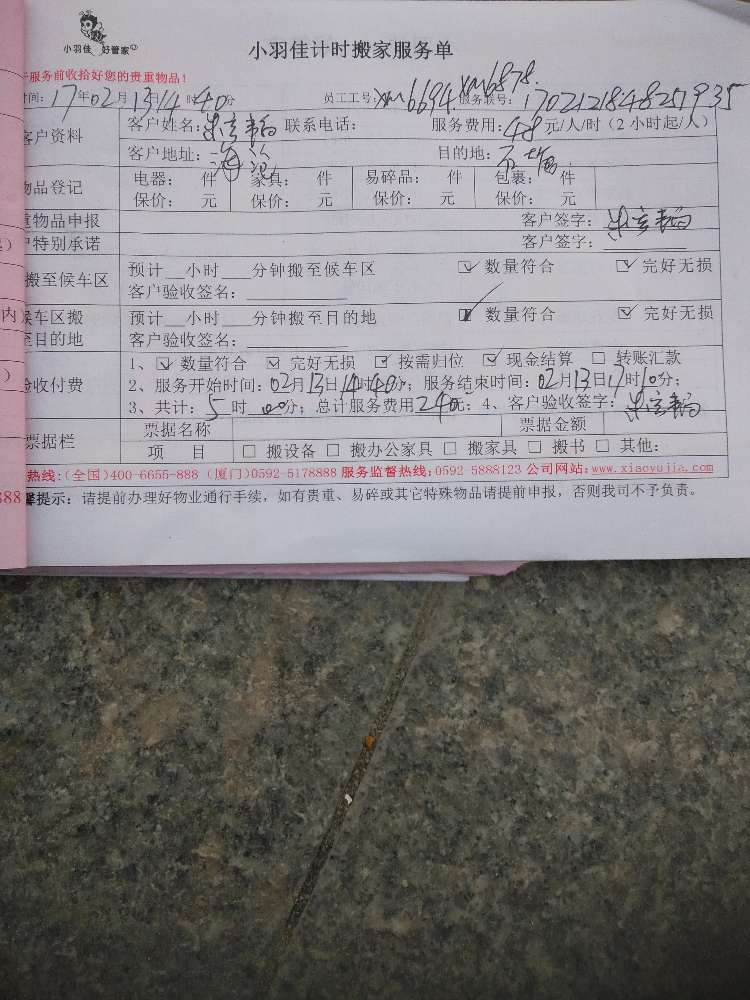 小羽佳 好管家
小羽佳计时搬家服务单
服务前收拾好您的贵重物品!
时间: 17年02月13日14时40分 员工工号: xm6694 xm6878. 服务联号: 1702121848251935
客户资料 客户姓名: 联系电话: 服务费用: 48元/人/时(2小时起/人)
客户地址: 海沧 目的地:
物品登记 电器: 件 家具: 件 易碎品: 件 包裹: 件
保价: 元 保价: 元 保价: 元 保价: 元
重物品申报 客户签字:
特别承诺 客户签字:
搬至候车区 预计__小时___分钟搬至候车区 ☑数量符合 ☑完好无损
客户验收签名:
候车区搬至目的地 预计__小时___分钟搬至目的地 ☑数量符合 ☑完好无损
客户验收签名:
验收付费 1、☑数量符合 ☑完好无损 ☑按需归位 ☑现金结算 □转账汇款
2、服务开始时间: 02月13日14时40分; 服务结束时间: 02月13日17时10分;
3、共计: 5时00分; 总计服务费用240元; 4、客户验收签字:
票据栏 票据名称 票据金额
项 目 □搬设备 □搬办公家具 □搬家具 □搬书 □其他:
热线:(全国)400-6655-888 (厦门)0592-5178888 服务监督热线:0592-5888123 公司网站:www.xiaoyujia.com
馨提示: 请提前办理好物业通行手续,如有贵重、易碎或其它特殊物品请提前申报,否则我司不予负责。
内
888